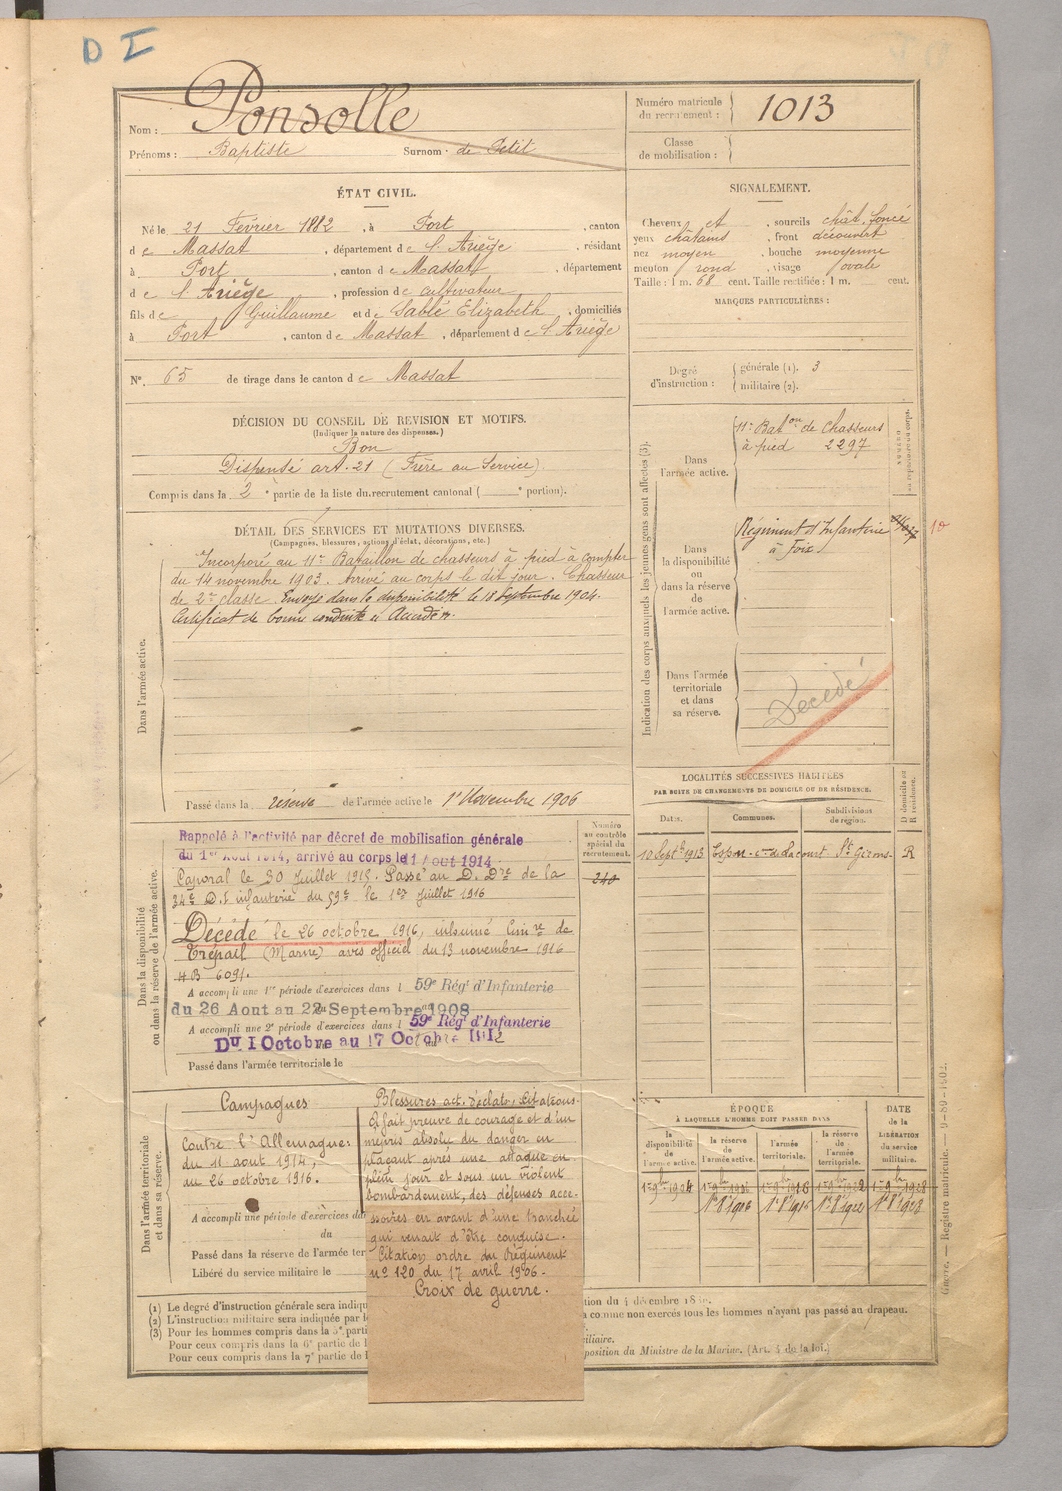 D I
Nom : Ponsolle
Prénoms : Baptiste Surnom : de Petit
Numéro matricule du recrutement : 1013
Classe de mobilisation :
ÉTAT CIVIL.
Né le 21 Février 1882, à Port, canton
de Massat, département de l'Ariège, résidant
à Port, canton de Massat, département
de l'Ariège, profession de cultivateur
fils de Guillaume et de Sablé Elizabeth, domiciliés
à Port, canton de Massat, département de l'Ariège
N° 65 de tirage dans le canton de Massat
SIGNALEMENT.
Cheveux et, sourcils chât. foncé
yeux châtains, front découvert
nez moyen, bouche moyenne
menton rond, visage ovale
Taille : 1 m. 68 cent. Taille rectifiée : 1 m. cent.
MARQUES PARTICULIÈRES :
Degré d'instruction : générale (1). 3
militaire (2).
DÉCISION DU CONSEIL DE REVISION ET MOTIFS.
(Indiquer la nature des dispenses.)
Bon
Dispensé art. 21 (Frère au Service)
Compris dans la 2e partie de la liste du recrutement cantonal ( e portion).
DÉTAIL DES SERVICES ET MUTATIONS DIVERSES.
(Campagnes, blessures, actions d'éclat, décorations, etc.)
Dans l'armée active.
Incorporé au 11e Bataillon de chasseurs à pied à compter
du 14 novembre 1903. Arrivé au corps le dit jour. Chasseur
de 2e classe. Envoyé dans la disponibilité le 18 Septembre 1904.
Certificat de bonne conduite « Accordé ».
Passé dans la réserve de l'armée active le 1er Novembre 1906
Indication des corps auxquels les jeunes gens sont affectés (3).
NUMÉRO
Dans l'armée active.
11e Baton de Chasseurs
à pied 2297
Dans la disponibilité ou dans la réserve de l'armée active.
Régiment d'Infanterie
à Foix
Dans l'armée territoriale et dans sa réserve.
Décédé
LOCALITÉS SUCCESSIVES HABITÉES
PAR SUITE DE CHANGEMENTS DE DOMICILE OU DE RÉSIDENCE.
Dates. Communes. Subdivisions de région. D domicile ou R résidence.
10 Septb 1913 Lacourt St Girons R
Dans la disponibilité ou dans la réserve de l'armée active.
Numéro au contrôle spécial du recrutement.
240
Rappelé à l'activité par décret de mobilisation générale
du 1er Aout 1914, arrivé au corps le 11 Aout 1914
Caporal le 30 Juillet 1915. Passé au D. Dre de la
34e D.I infanterie du 59e le 1er Juillet 1916
Décédé le 26 octobre 1916, inhumé Cimre de
Trépail (Marne) avis officiel du 13 novembre 1916
HB 6091.
A accompli une 1re période d'exercices dans l 59e Régt d'Infanterie
du 26 Aout au 22 Septembre 1908
A accompli une 2e période d'exercices dans l 59e Régt d'Infanterie
Du 1 Octobre au 17 Octobre 1912
Passé dans l'armée territoriale le
Dans l'armée territoriale et dans sa réserve.
Campagnes
Contre l'Allemagne:
du 11 aout 1914,
au 26 octobre 1916.
A accompli une période d'exercices da
du
Passé dans la réserve de l'armée ter
Libéré du service militaire le
Blessures act. d'éclats, citations.
A fait preuve de courage et d'un
mépris absolu du danger en
plaçant après une attaque en
plein jour et sous un violent
bombardement, des défenses acce-
ssoires en avant d'une tranchée
qui venait d'être conquise.
Citation ordre du Régiment
no 120 du 17 avril 1906.
Croix de guerre.
ÉPOQUE
À LAQUELLE L'HOMME DOIT PASSER DANS
la disponibilité de l'armée active.
la réserve de l'armée active.
l'armée territoriale.
la réserve de l'armée territoriale.
DATE de la LIBÉRATION du service militaire.
1er 9b 1904 1er 9b 1906 1er 9b 1916 1er 9b 1922 1er 9b 1928
1er 8b 1906 1er 8b 1916 1er 8b 1922 1er 8b 1928
(1) Le degré d'instruction générale sera indiqu
tion du 4 décembre 18
(2) L'instruction militaire sera indiquée par l
a comme non exercés tous les hommes n'ayant pas passé au drapeau.
(3) Pour les hommes compris dans la 5e parti
iliaire.
Pour ceux compris dans la 6e partie de l
position du Ministre de la Marine. (Art. 4 de la loi.)
Pour ceux compris dans la 7e partie de l
Guerre. — Registre matricule. — 9-89-1902.